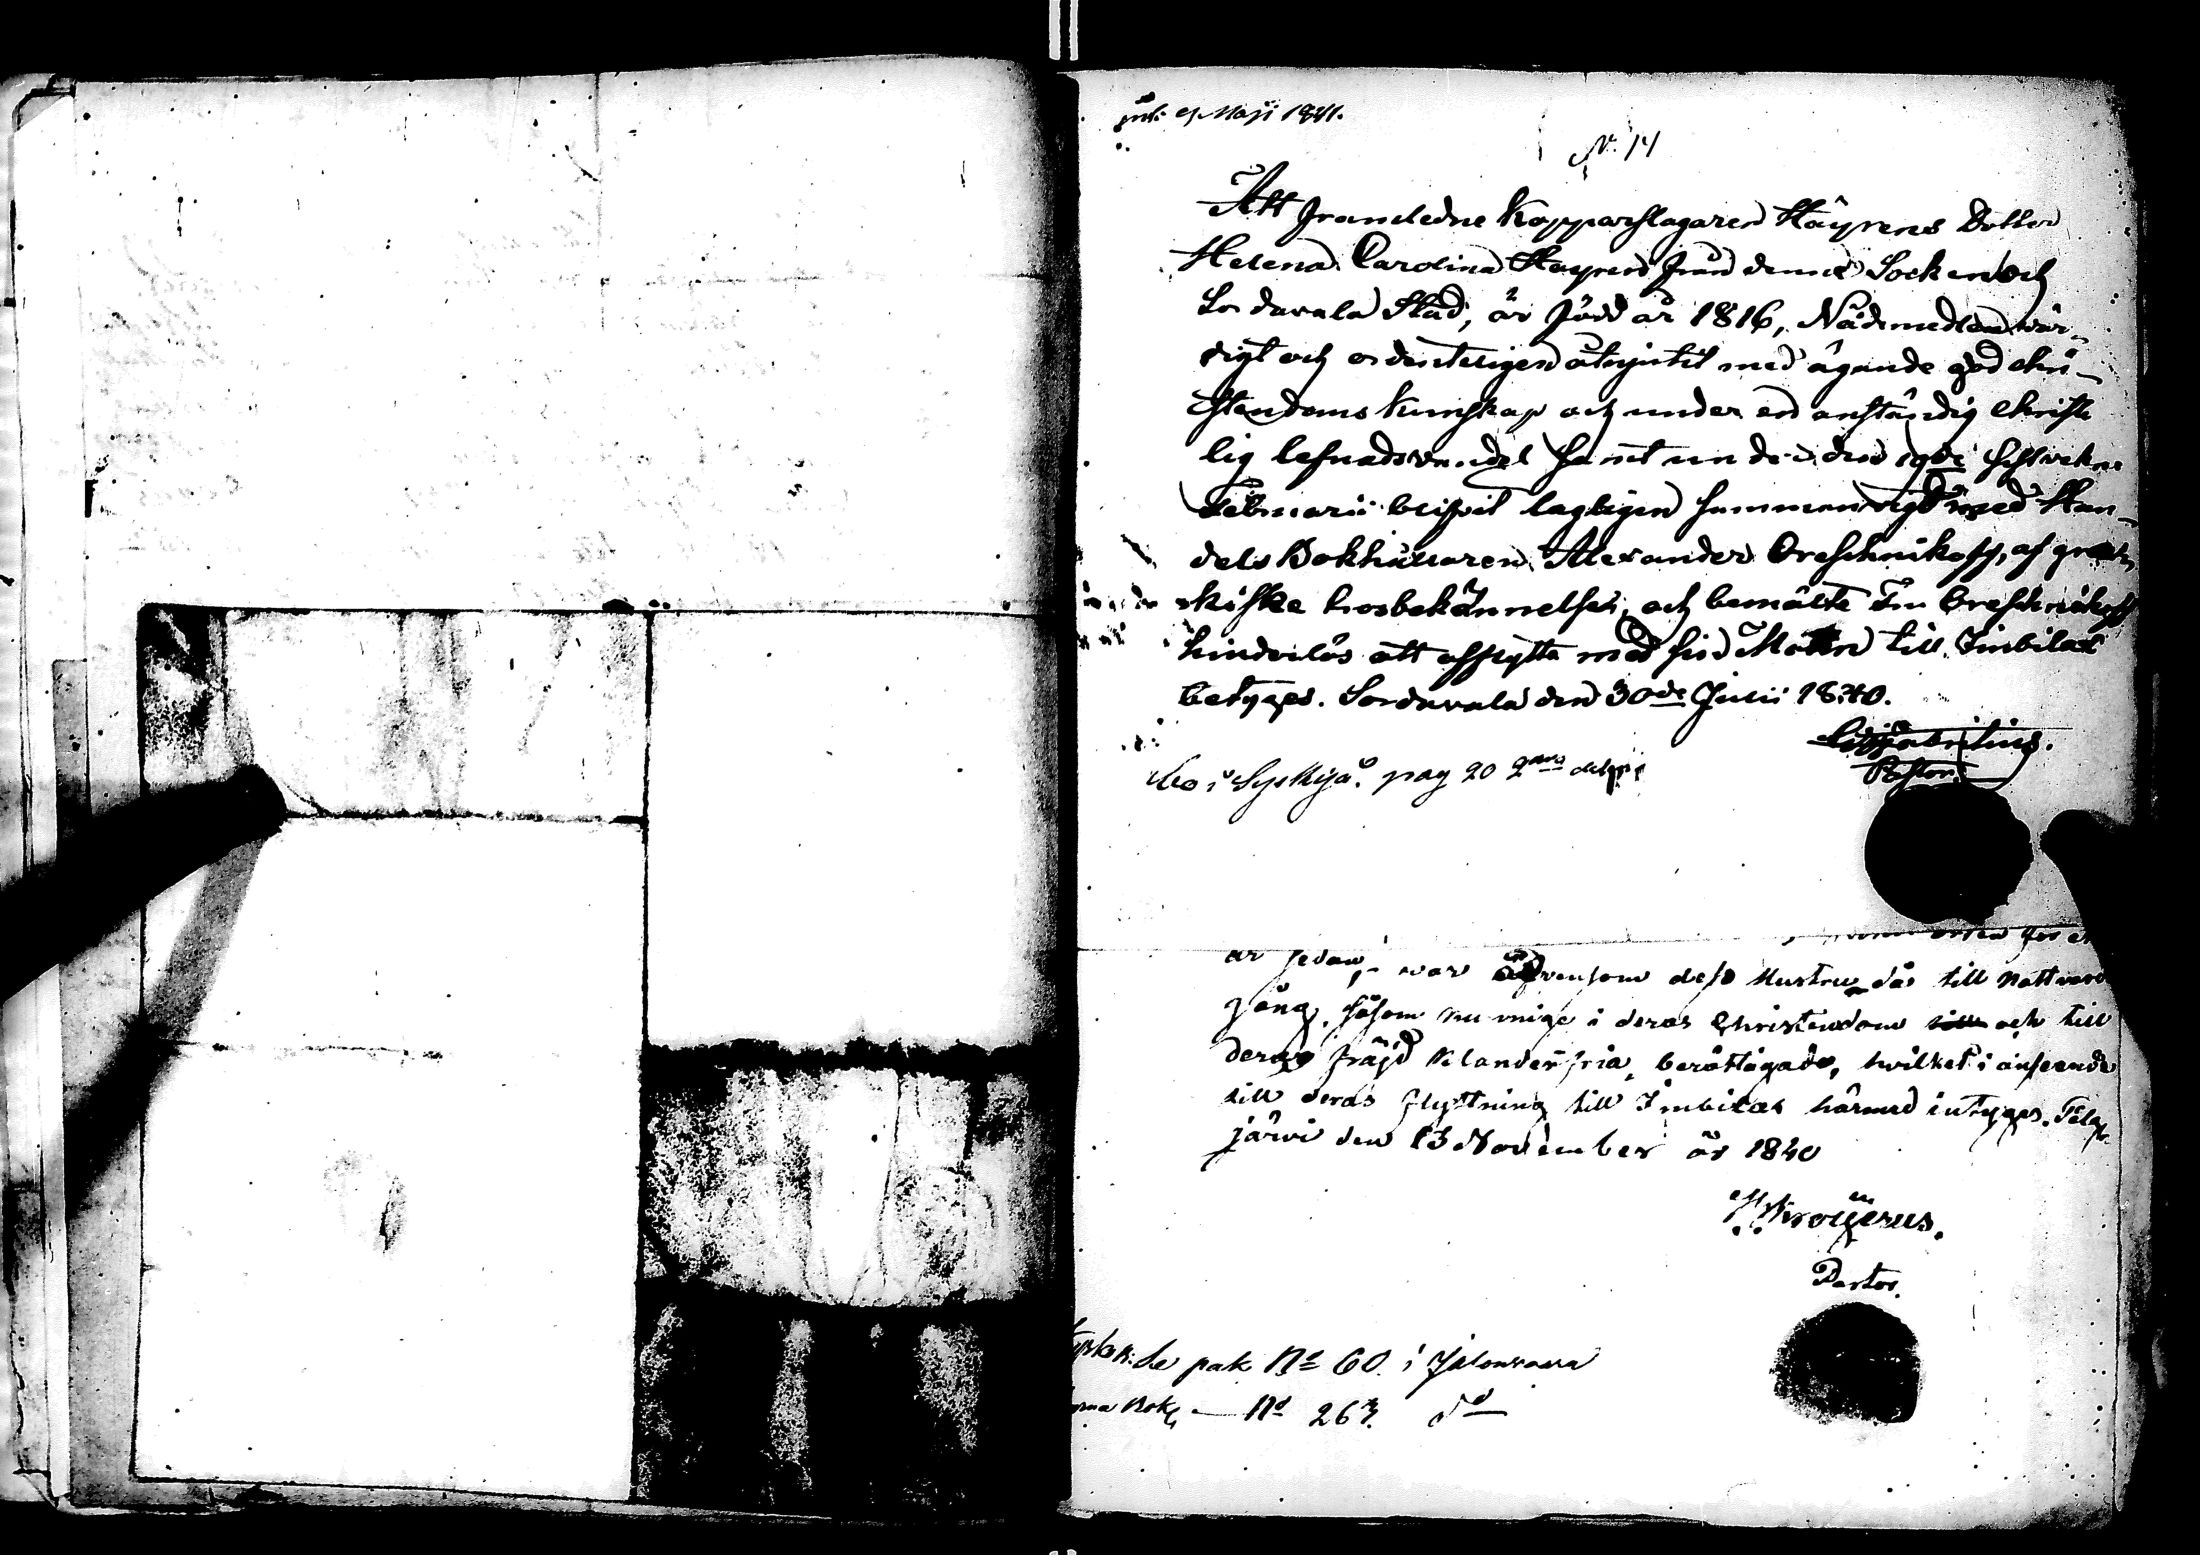 Maji 1841.
N. 14
Att framledne Kopparslagaren Häyrens Dotter
Helena Carolina Häyren från denne Socken och
Sordavala Stad, är född år 1816, Nådemedlen wär-
digt och ordenteligen åtnjutit med ägande god chri-
stendoms kunskap och under en anständig christe
lig lefnadsvandel samt under den
Februarii blifvit lagligen sammanvigd med Han-
dels Bokhållaren Alexander Oreschnikoff, af
kiske trosbekännelsen, och bemälte Fru Oreschnikoff
hinderlös att afflytta med sin Man till Imbilax
betyges. Sordavala den 30de Junii 1840.
Pastor.
Bo i Syskyjä. pag 20 2dra delen
år sedan, war äfvensom dess Hustru då till Nattvard
gång, såsom nu unige i deras Christendom och till
deras fräjd klanderfria, berättigade, hwilket i anseende
till deras flyttning till Imbilax härmed intyges.
järvi den 13 November år 1840
Krogerus.
Pastor.
Se pak No 60. i Jalonvaara
Bok, — No 267. do